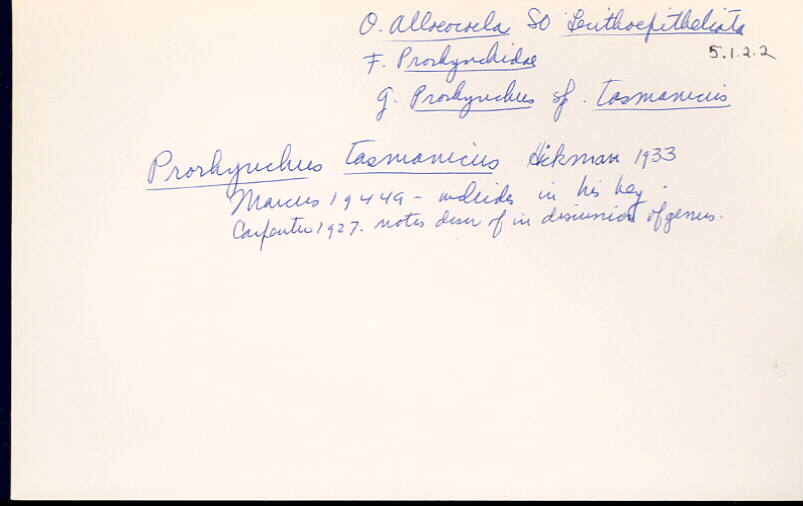 O. Alloeocoela SO Lecithoepitheliata
5.1.2.2
F. Prorhynchidae
G. Prorhynchus sp. tasmanicus
Prorhynchus tasmanicus Hickman 1933
Marcus 1944a - includes in his key.
Carpenter 1927. notes descr of in discussion of genus.